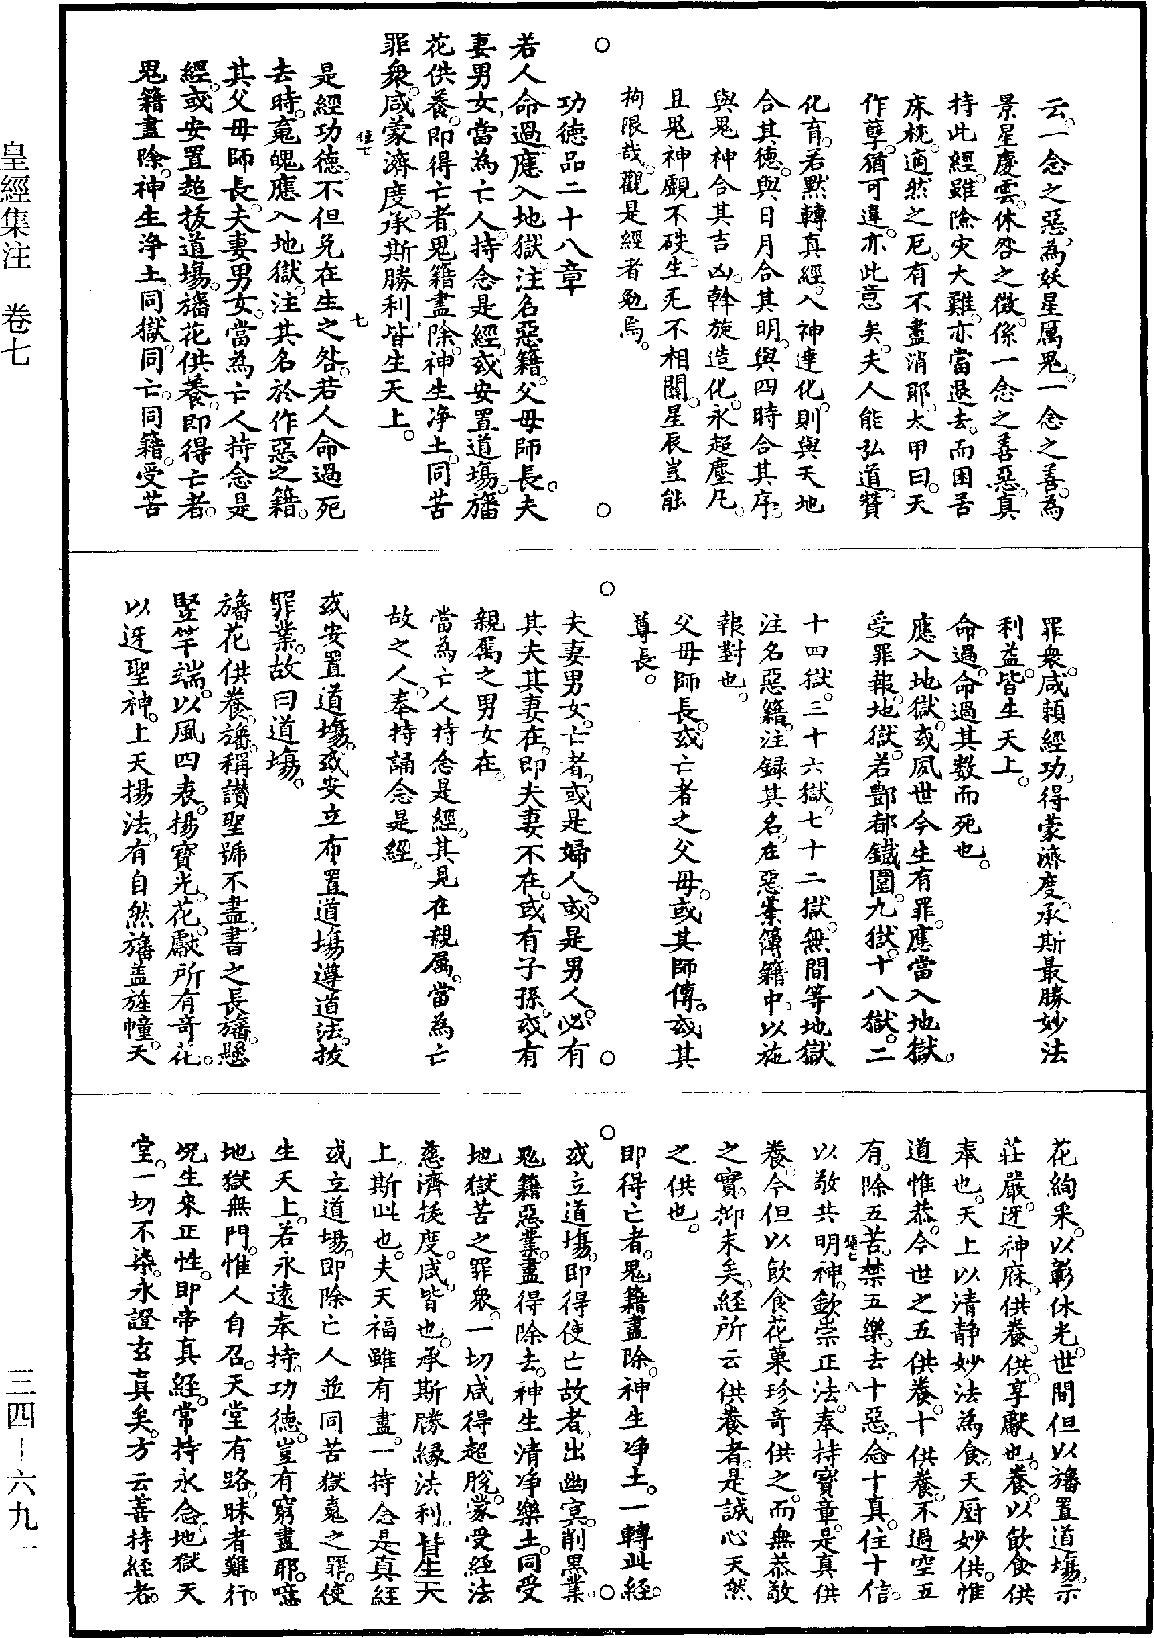 皇經集注 卷七
三四—六九一
云。一念之惡。為妖星厲鬼。一念之善。為
景星慶雲。休咎之徵。係一念之善惡。真
持此經。雖險灾大難。亦當退去。而困苦
床枕。適然之厄。有不盡消耶。太甲曰。天
作孽。猶可違。亦此意矣。夫人能弘道贊
化育。若默轉真經。入神達化。則與天地
合其德。與日月合其明。與四時合其序。
與鬼神合其吉凶。斡旋造化。永超塵凡。
且鬼神覷不破。生死不相關。星辰豈能
拘限哉。觀是經者勉焉。
功德品二十八章
若人命過。應入地獄。注名惡籍。父母師長。夫
妻男女。當為亡人。持念是經。或安置道場。旛
花供養。即得亡者。鬼籍盡除。神生净土。同苦
罪衆。咸蒙濟度。承斯勝利。皆生天上。
是經功德。不但免在生之咎。若人命過死
去時。䰟魄應入地獄。注其名於作惡之籍。
其父母師長。夫妻男女。當為亡人持念是
經。或安置超拔道場。旛花供養。即得亡者。
鬼籍盡除。神生浄土。同獄。同亡。同籍。受苦
罪衆。咸賴經功。得蒙濟度。承斯最勝妙法
利益。皆生天上。
命過。命過其數而死也。
應入地獄。或夙世今生有罪。應當入地獄。
受罪報。地獄。若酆都鐵圍。九獄。十八獄。二
十四獄。三十六獄。七十二獄。無間等地獄
注名惡籍。注録其名。在惡業簿籍中。以施
報對也。
父母師長。或亡者之父母。或其師傅。或其
尊長。
夫妻男女。亡者。或是婦人。或是男人。必有
其夫其妻在。即夫妻不在。或有子孫。或有
親屬之男女在。
當為亡人持念是經。其見在親屬。當為亡
故之人。奉持誦念是經。
或安置道場。或安立布置道場。遵道法。拔
罪業。故曰道場。
旛花供養。旛稱讃聖號不盡。書之長旛。懸
竪竿端。以風四表。揚寶光。花。獻所有奇花。
以迓聖神。上天揚法。有自然旛盖旌幢。天
花絢采。以彰休光。世間但以旛置道場。示
莊嚴。迓神庥。供養。供。享獻也。養。以飲食供
奉也。天上以清静妙法為食。天厨妙供。惟
道惟恭。今世之五供養。十供養。不過空五
有。除五苦。禁五樂。去十惡。念十真。住十信。
以敬共明神。欽崇正法。奉持寶章。是真供
養。今但以飲食花菓珍奇供之。而無恭敬
之實。抑末矣。經所云供養者。是誠心天然
之供也。
即得亡者。鬼籍盡除。神生净土。一轉此經。
或立道場。即得使亡故者。出幽冥。削黑業。
鬼籍惡業。盡得除去。神生清净樂土。同受
地獄苦之罪衆。一切咸得超脫。蒙受經法
慈濟後度。咸。皆也。承斯勝緣法利。皆生天
上。斯。此也。夫天福雖有盡。一持念是真經
或立道場。即除亡人並同苦獄䰟之罪。使
生天上。若永遠奉持。功德豈有窮盡耶。噫
地獄無門。惟人自召。天堂有路。昧者難行。
況生來正性。即帝真經。常持永念。地獄天
堂。一切不染。永證玄真矣。方云善持經者。